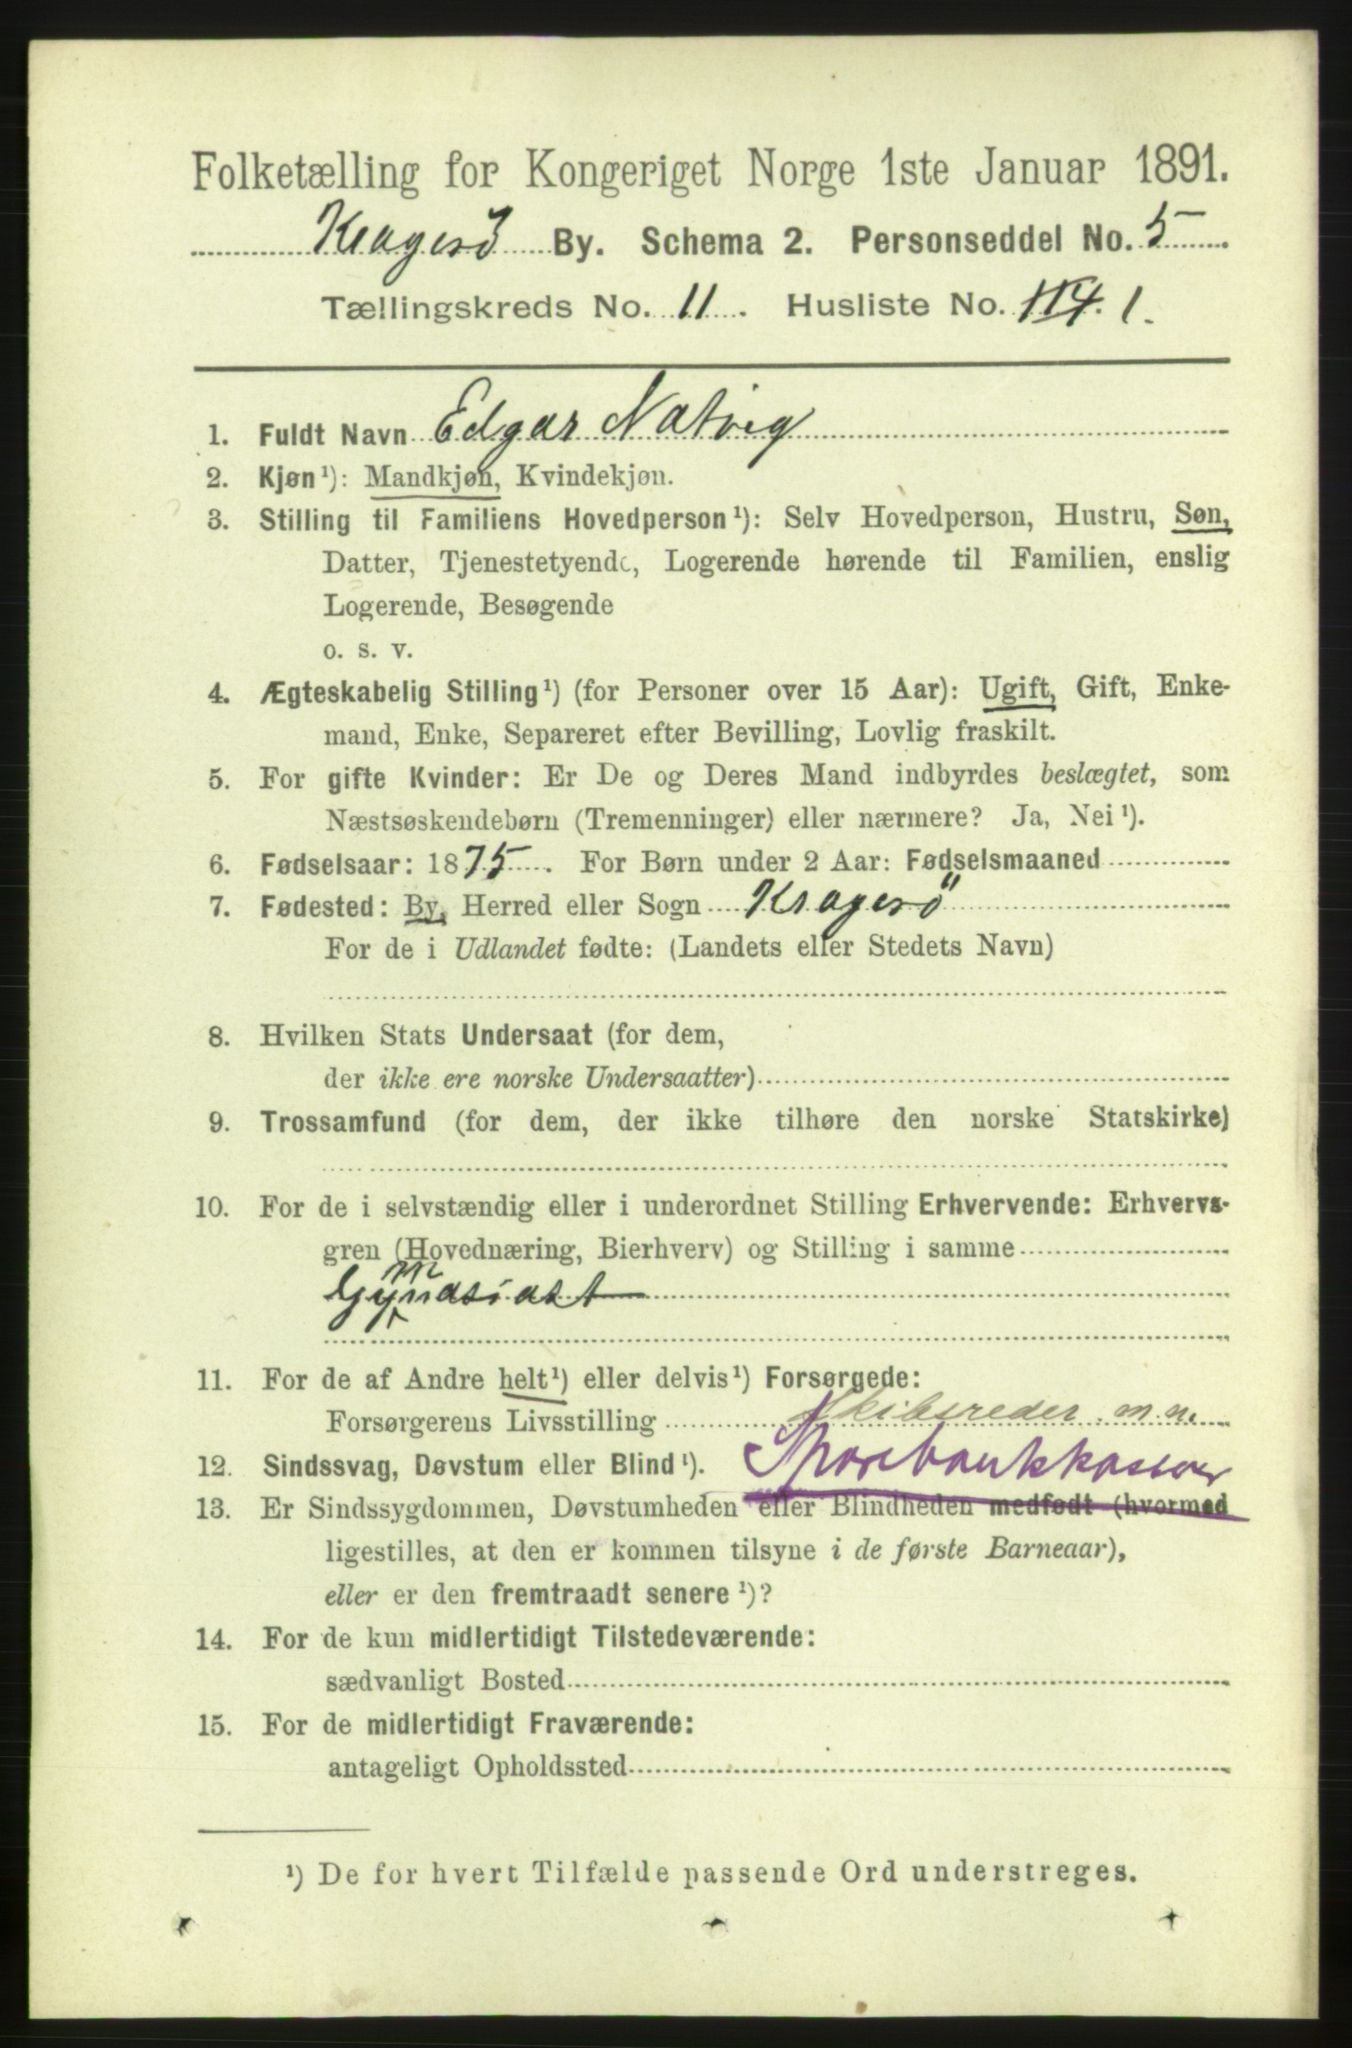 Folketælling for Kongeriget Norge 1ste Januar 1891.
Kragerö By. Schema 2. Personseddel No. 5
Tællingskreds No. 11. Husliste No. 114. 1.
1. Fuldt Navn Edgar Natvig
2. Kjøn¹): Mandkjøn, Kvindekjøn.
3. Stilling til Familiens Hovedperson¹): Selv Hovedperson, Hustru, Søn,
Datter, Tjenestetyende, Logerende hørende til Familien, enslig
Logerende, Besøgende
o. s. v.
4. Ægteskabelig Stilling¹) (for Personer over 15 Aar): Ugift, Gift, Enke-
mand, Enke, Separeret efter Bevilling, Lovlig fraskilt.
5. For gifte Kvinder: Er De og Deres Mand indbyrdes beslægtet, som
Næstsøskendebørn (Tremenninger) eller nærmere? Ja, Nei¹).
6. Fødselsaar: 1875. For Børn under 2 Aar: Fødselsmaaned
7. Fødested: By, Herred eller Sogn Kragerö
For de i Udlandet fødte: (Landets eller Stedets Navn)
8. Hvilken Stats Undersaat (for dem,
der ikke ere norske Undersaatter)
9. Trossamfund (for dem, der ikke tilhøre den norske Statskirke)
10. For de i selvstændig eller i underordnet Stilling Erhvervende: Erhvervs-
gren (Hovednæring, Bierhverv) og Stilling i samme
Gymnasiast
11. For de af Andre helt¹) eller delvis¹) Forsørgede:
Forsørgerens Livsstilling Skibsreder m.m.
12. Sindssvag, Døvstum eller Blind¹). Sparebankkasserer
13. Er Sindssygdommen, Døvstumheden eller Blindheden medfødt (hvormed
ligestilles, at den er kommen tilsyne i de første Barneaar),
eller er den fremtraadt senere¹)?
14. For de kun midlertidigt Tilstedeværende:
sædvanligt Bosted
15. For de midlertidigt Fraværende:
antageligt Opholdssted
¹) De for hvert Tilfælde passende Ord understreges.